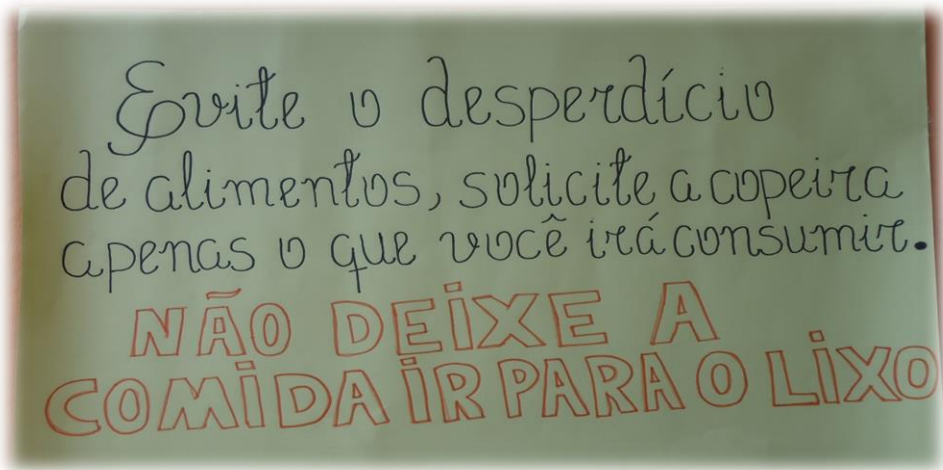 Evite o desperdício
de alimentos, solicite a copeira
apenas o que você irá consumir.
NÃO DEIXE A
COMIDA IR PARA O LIXO